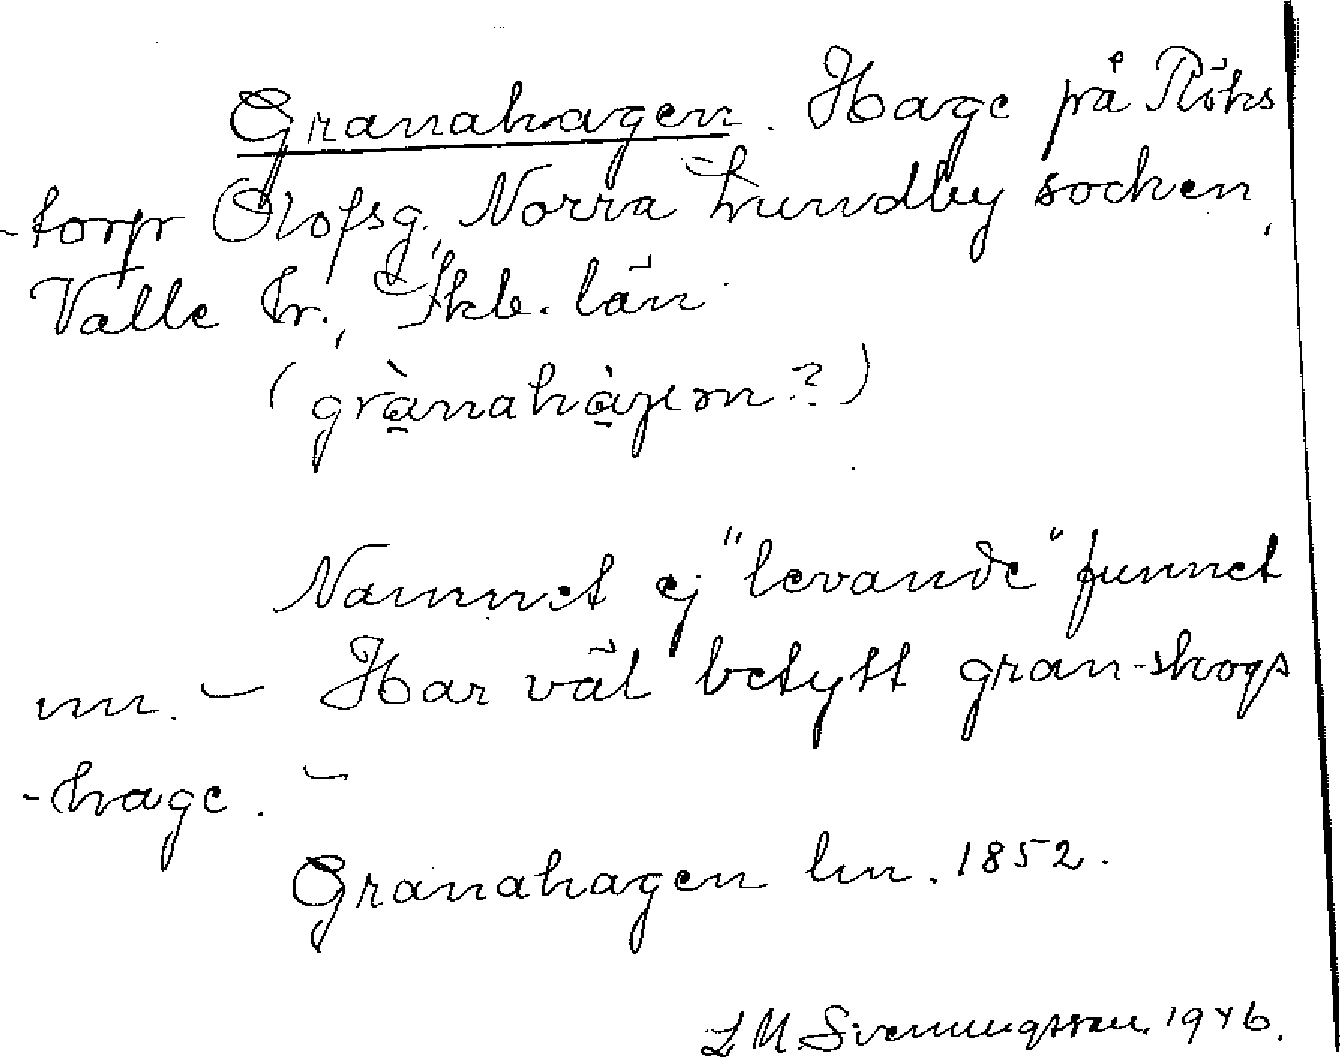 Granahagen. Hage på Röks
-torp Olofsg., Norra Lundby socken,
Valle hr., Skb. län.
(grànahàgen?)
Namnet ej "levande" funnet
nu. – Har väl betytt gran-skogs
-hage. –
Granahagen lm. 1852.
L M Svenungsson 1946.